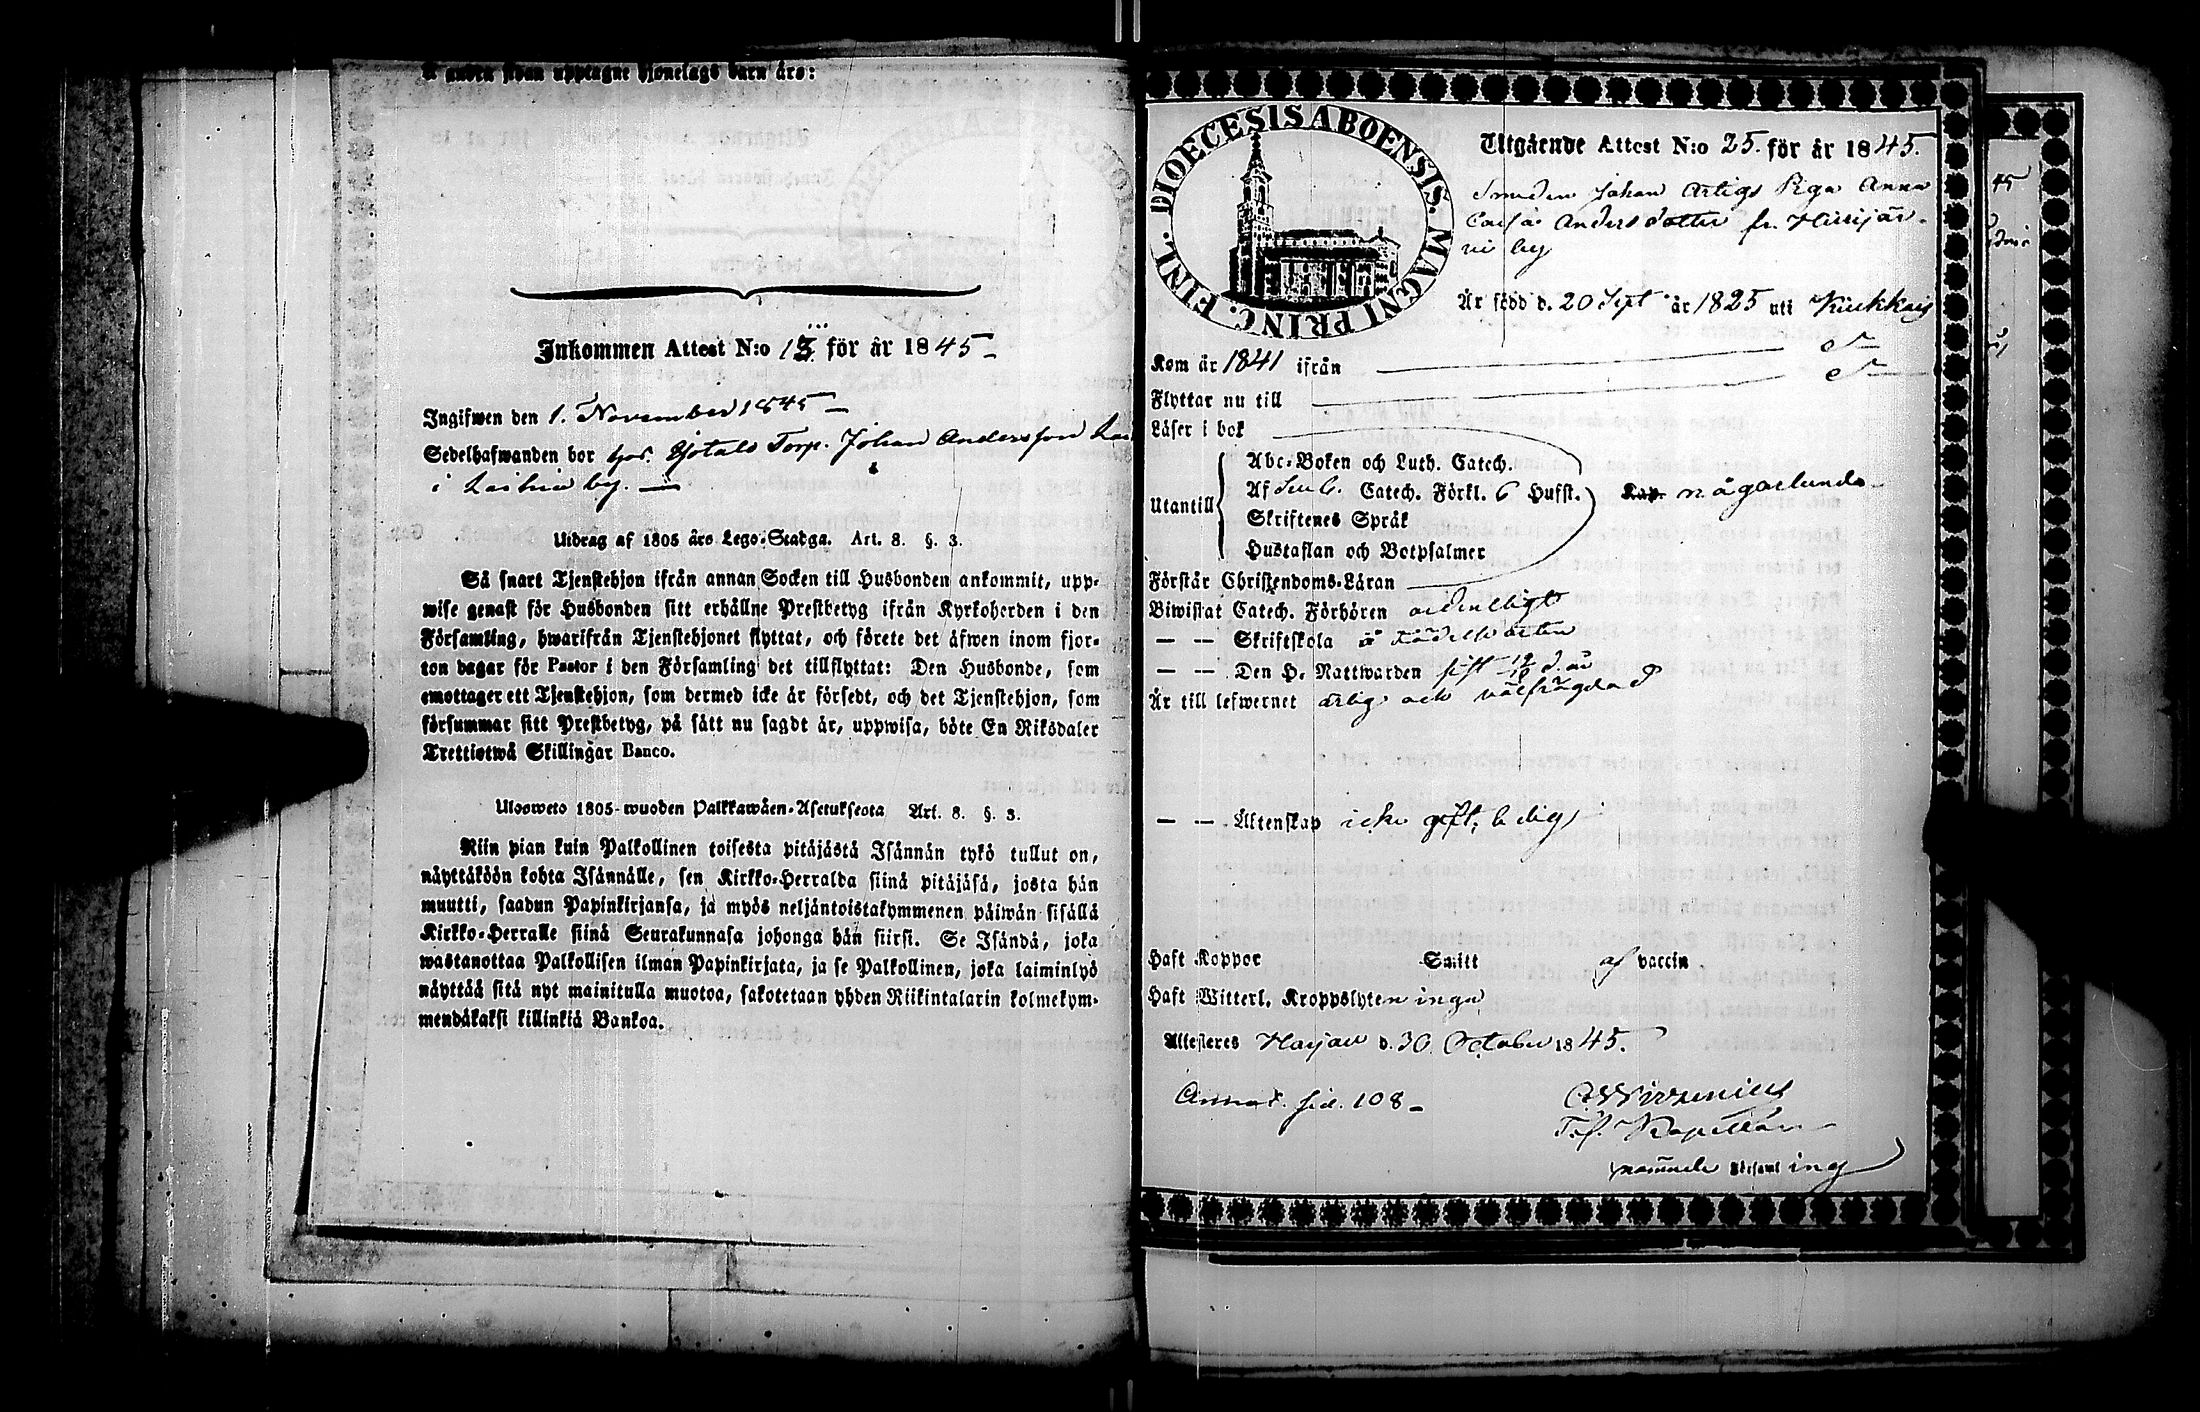 å andra sidan upptagne hjonelags barn äro:
Inkommen Attest N:o 13 för år 1845 –
Ingifwen den 1. November 1845 –
Sedelhafwanden bor hos Torp. Johan Andersson
i by. –
Utdrag af 1805 års Lego-Stadga. Art. 8. §. 3.
Så snart Tjenstehjon ifrån annan Socken till Husbonden ankommit, upp-
wise genast för Husbonden sitt erhållne Prestbetyg ifrån Kyrkoherden i den
Församling, hwarifrån Tjenstehjonet flyttat, och förete det äfwen inom fjor-
ton dagar för Pastor i den Församling det tillflyttat: Den Husbonde, som
emottager ett Tjenstehjon, som dermed icke är försedt, och det Tjenstehjon, som
försummar sitt Prestbetyg, på sätt nu sagdt är, uppwisa, böte En Riksdaler
Trettiotwå Skillingar Banco.
Ulosweto 1805-wuoden Palkkawäen-Asetuksesta Art. 8. §. 3.
Niin pian kuin Palkollinen toisesta pitäjästä Isännän tykö tullut on,
näyttäköön kohta Isännälle, sen Kirkko-Herralda siinä pitäjäsä, josta hän
muutti, saadun Papinkirjansa, ja myös neljäntoistakymmenen päiwän sisällä
Kirkko-Herralle siinä Seurakunnasa johonga hän siirsi. Se Isändä, joka
wastanottaa Palkollisen ilman Papinkirjata, ja se Palkollinen, joka laiminlyö
näyttää sitä nyt mainitulla muotoa, sakotetaan yhden Riikintalarin kolmekym-
mendäkaksi killinkiä Bankoa.
DIOECESIS ABOENSIS. MAGNI PRINC. FINL.
Utgående Attest N:o 25. för år 1845.
Smeden Johan Artigs Piga Anna
Cajsa Andersdotter fr. Hirsijär-
vi by
Är född d. 20 Sept år 1825 uti Kiukkais
Kom år 1841 ifrån
Flyttar nu till
Läser i bok
Abc-Boken och Luth. Catech.
Utantill Af Catech. Förkl. 6 Hufst. Kap. någorlunda
Skriftenes Språk
Hustaflan och Botpsalmer
Förstår Christendoms-Läran
Biwistat Catech. Förhören ordentligt
– – Skriftskola å
– – Den H. Nattwarden sist 19/10 d. år
Är till lefwernet ärlig och välfrägdad
– – Äktenskap icke gift, ledig
Haft Koppor Smitt af vaccin
Haft Witterl. Kroppslyten inga
Attesteres Harjau d. 30 October 1845.
Annot. sid. 108 –
Kapellan
nämnde Församling